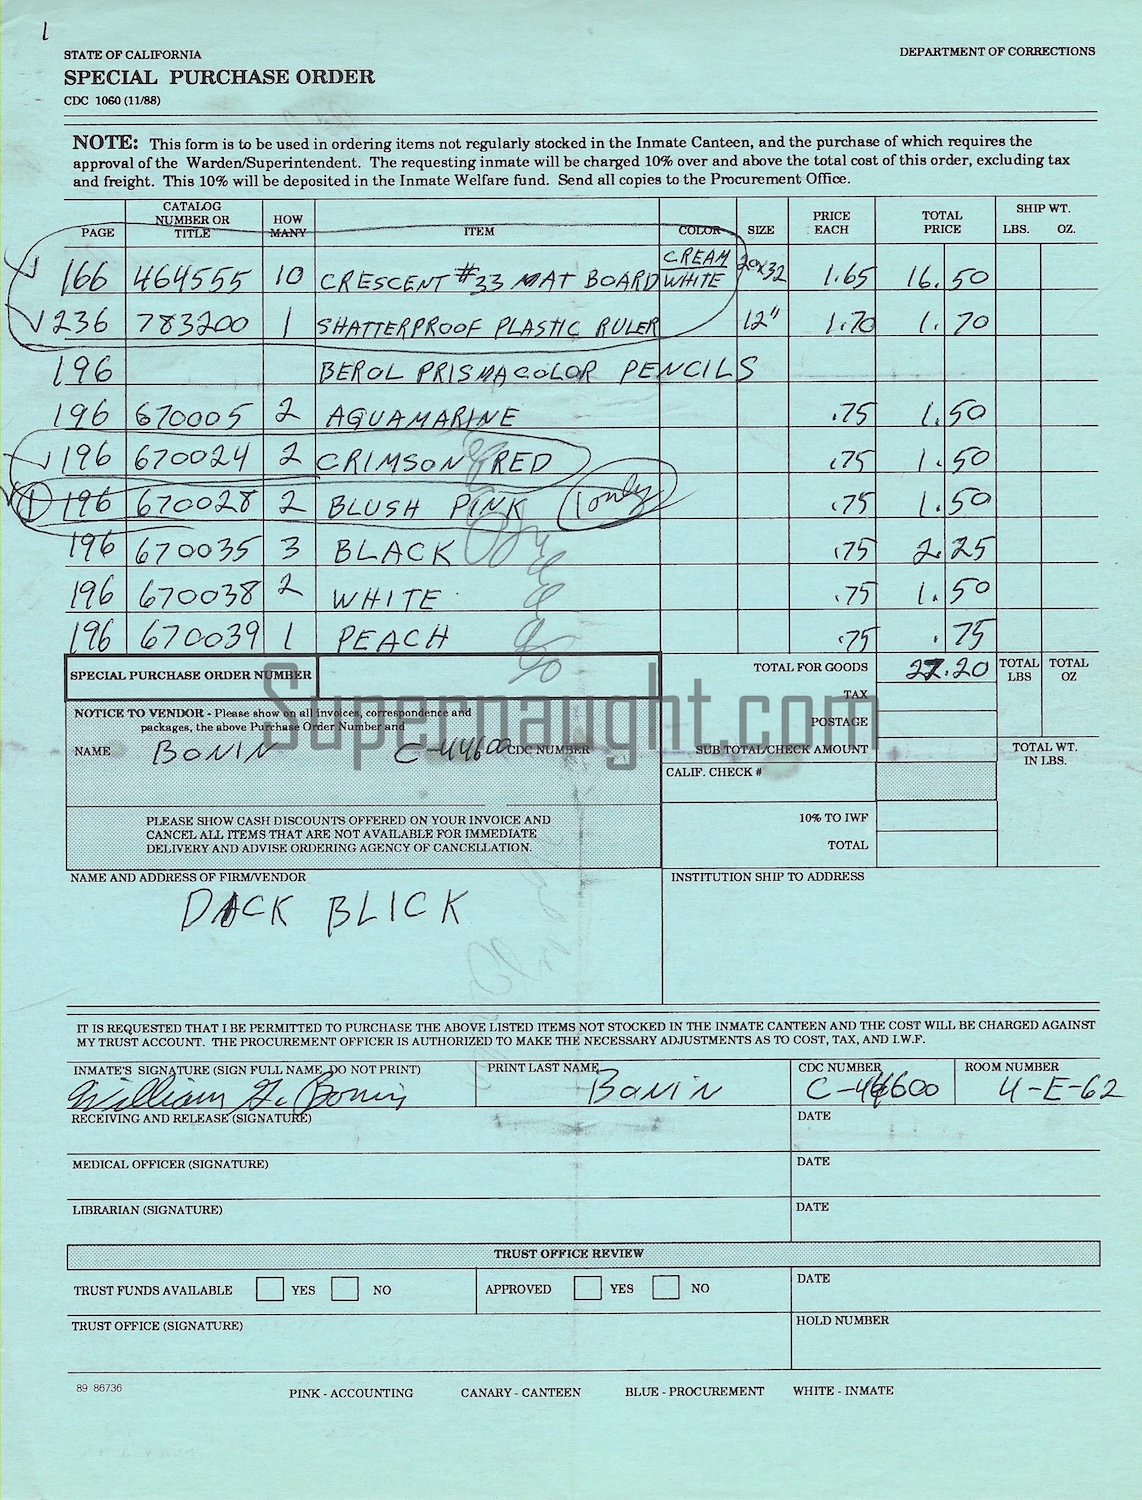 1
STATE OF CALIFORNIA DEPARTMENT OF CORRECTIONS
SPECIAL PURCHASE ORDER
CDC 1060 (11/88)
NOTE: This form is to be used in ordering items not regularly stocked in the Inmate Canteen, and the purchase of which requires the
approval of the Warden/Superintendent. The requesting inmate will be charged 10% over and above the total cost of this order, excluding tax
and freight. This 10% will be deposited in the Inmate Welfare fund. Send all copies to the Procurement Office.
PAGE CATALOG NUMBER OR TITLE HOW MANY ITEM COLOR SIZE PRICE EACH TOTAL PRICE SHIP WT. LBS. OZ.
166 464555 10 CRESCENT #33 MAT BOARD CREAM WHITE 20x32 1.65 16.50
236 783200 1 SHATTERPROOF PLASTIC RULER 12" 1.70 1.70
196 BEROL PRISMACOLOR PENCILS
196 670005 2 AQUAMARINE .75 1.50
196 670024 2 CRIMSON RED .75 1.50
1 196 670028 2 BLUSH PINK 1 only .75 1.50
196 670035 3 BLACK .75 2.25
196 670038 2 WHITE .75 1.50
196 670039 1 PEACH .75 .75
SPECIAL PURCHASE ORDER NUMBER TOTAL FOR GOODS 27.20 TOTAL LBS TOTAL OZ
TAX
Supernaught.com
NOTICE TO VENDOR - Please show on all invoices, correspondence and
packages, the above Purchase Order Number and POSTAGE
NAME BONIN C-44600 CDC NUMBER SUB TOTAL/CHECK AMOUNT TOTAL WT. IN LBS.
CALIF. CHECK #
PLEASE SHOW CASH DISCOUNTS OFFERED ON YOUR INVOICE AND 10% TO IWF
CANCEL ALL ITEMS THAT ARE NOT AVAILABLE FOR IMMEDIATE
DELIVERY AND ADVISE ORDERING AGENCY OF CANCELLATION. TOTAL
NAME AND ADDRESS OF FIRM/VENDOR INSTITUTION SHIP TO ADDRESS
DICK BLICK
IT IS REQUESTED THAT I BE PERMITTED TO PURCHASE THE ABOVE LISTED ITEMS NOT STOCKED IN THE INMATE CANTEEN AND THE COST WILL BE CHARGED AGAINST
MY TRUST ACCOUNT. THE PROCUREMENT OFFICER IS AUTHORIZED TO MAKE THE NECESSARY ADJUSTMENTS AS TO COST, TAX, AND I.W.F.
INMATE'S SIGNATURE (SIGN FULL NAME, DO NOT PRINT) PRINT LAST NAME CDC NUMBER ROOM NUMBER
William G. Bonin BONIN C-44600 4-E-62
RECEIVING AND RELEASE (SIGNATURE) DATE
MEDICAL OFFICER (SIGNATURE) DATE
LIBRARIAN (SIGNATURE) DATE
TRUST OFFICE REVIEW
TRUST FUNDS AVAILABLE YES NO APPROVED YES NO DATE
TRUST OFFICE (SIGNATURE) HOLD NUMBER
89 86736
PINK - ACCOUNTING CANARY - CANTEEN BLUE - PROCUREMENT WHITE - INMATE